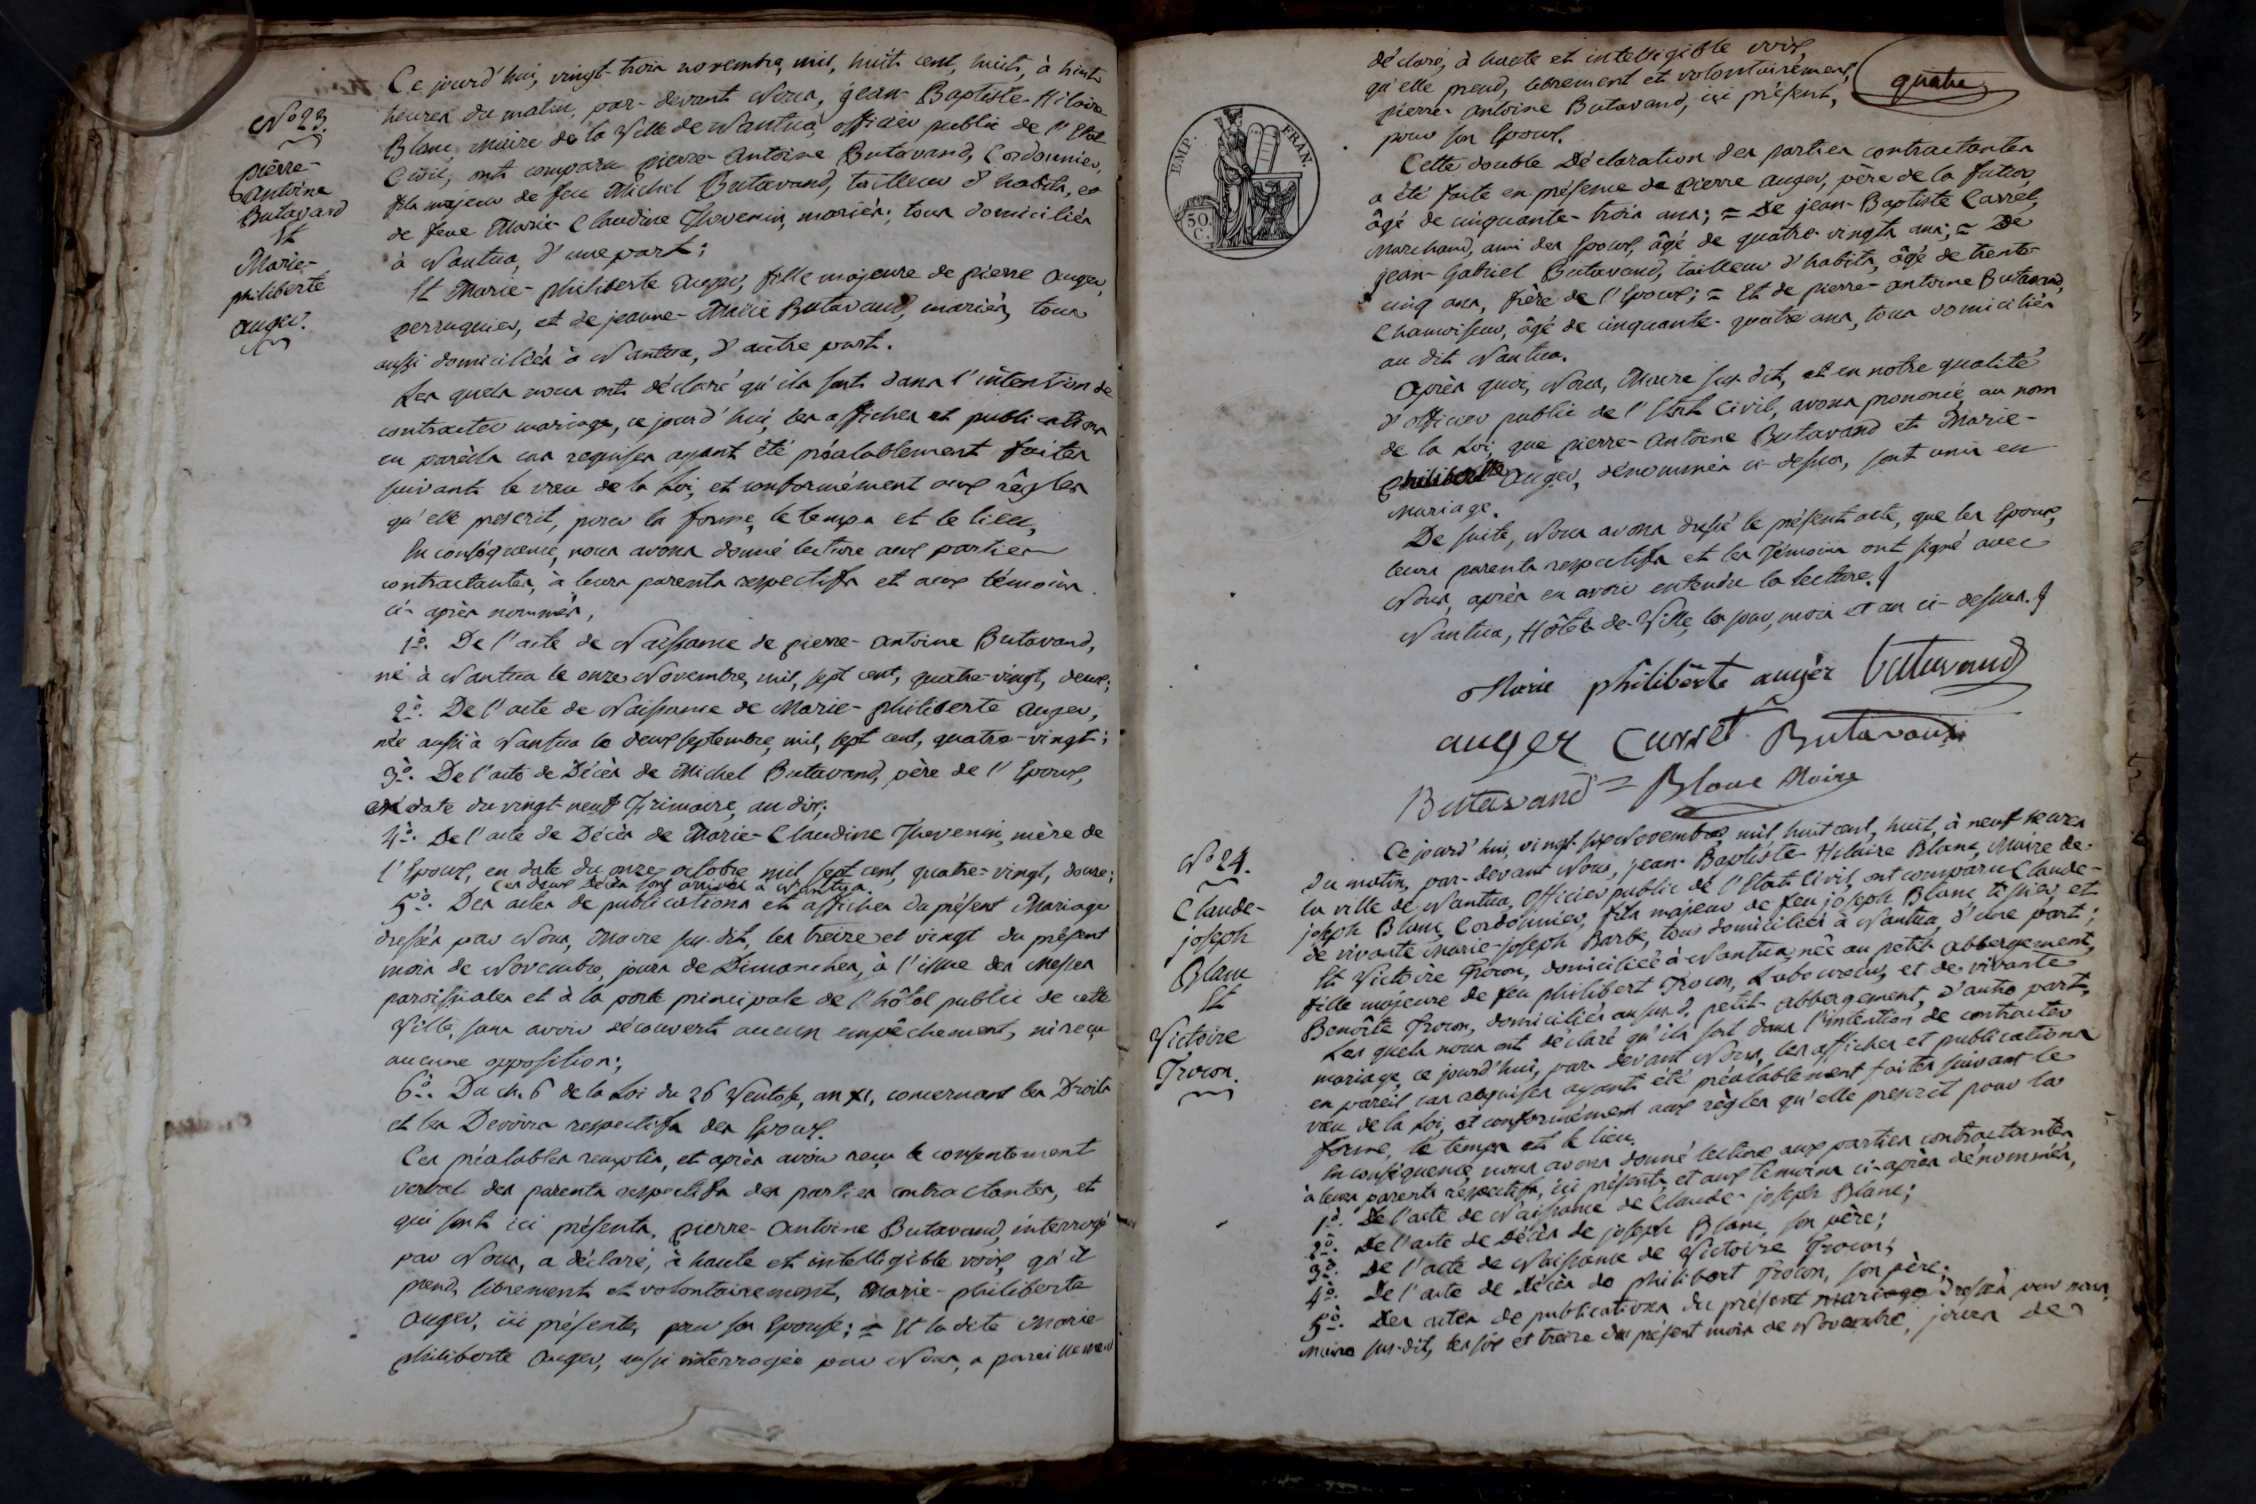 N° 23.
pierre-
antoine
Butavand
Et
Marie-
philiberte
auger.
Ce jourd'hui, vingt-trois novembre, mil, huit cent, huit, à huit
heures du matin, par-devant Nous, jean-Baptiste-Hilaire
Blanc, Maire de la Ville de Nantua, officier public de l'Etat
Civil, ont comparu pierre-antoine Butavand, Cordonnier,
fils majeur de feu Michel Butavand, tailleur d'habits, et
de feue Marie-Claudine Thevenin, mariés; tous domiciliés
à Nantua, d'une part;
Et Marie-philiberte auger, fille majeure de pierre auger,
perruquier, et de jeanne-Marie Butavand, mariés, tous
aussi domiciliés à Nantua, d'autre part.
Les quels nous ont déclaré qu'ils sont dans l'intention de
contracter mariage, ce jourd'hui, les affiches et publications
en pareils cas requises ayant été préalablement faites
suivant le vœu de la Loi, et conformément aux règles
qu'elle prescrit, pour la forme, le temps et le lieu,
En conséquence, nous avons donné lecture aux parties
contractantes, à leurs parents respectifs et aux témoins
ci-après nommés,
1°. De l'acte de Naissance de pierre-antoine Butavand,
né à Nantua le onze Novembre, mil, sept cent, quatre-vingt, deux;
2°. De l'acte de Naissance de Marie-philiberte auger,
née aussi à Nantua le deux septembre, mil, sept cent, quatre-vingt;
3°. De l'acte de Décès de Michel Butavand, père de l'Epoux,
en date du vingt neuf frimaire, an dix;
4°. De l'acte de Décès de Marie-Claudine Thevenin, mère de
l'Epoux, en date du onze octobre mil sept cent, quatre-vingt, douze;
Ces deux Décès sont arrivés à Nantua.
5°. Des actes de publications et affiches du présent Mariage
dressés par Nous, Maire sus-dit, les treize et vingt du présent
mois de Novembre, jours de Dimanches, à l'issue des Messes
paroissiales et à la porte principale de l'hôtel public de cette
Ville, sans avoir découvert aucun empêchement, ni reçu
aucune opposition;
6°. Du ch. 6 de la Loi du 26 Ventose, an XI, concernant les Droits
et les Devoirs respectifs des Epoux.
Ces préalables remplis, et après avoir reçu le consentement
verbal des parents respectifs des parties contractantes, et
qui sont ici présents, pierre-antoine Butavand, interrogé
par Nous, a déclaré, à haute et intelligible voix, qu'il
prend, librement et volontairement, Marie-philiberte
auger, ici présente, pour son Epouse; = Et la dite Marie
philiberte auger, aussi interrogée par Nous, a pareillement
quatre
EMP. FRAN.
50.
C.
déclaré, à haute et intelligible voix,
qu'elle prend, librement et volontairement,
pierre-antoine Butavand, ici présent,
pour son Epoux.
Cette double Déclaration des parties contractantes
a été faite en présence de pierre auger, père de la future
âgé de cinquante-trois ans; = De jean-Baptiste Carret,
Marchand, ami des Epoux, âgé de quatre vingts ans; = De
jean-Gabriel Butavand, tailleur d'habits, âgé de trente-
cinq ans, frère de l'Epoux; = Et de pierre-antoine Butavand,
Chanvisseur, âgé de cinquante-quatre ans, tous domiciliés
au dit Nantua.
Après quoi, Nous, Maire sus dit, et en notre qualité
d'officier public de l'Etat Civil, avons prononcé, au nom
de la Loi, que pierre-antoine Butavand et Marie-
philiberte auger, dénommés ci-dessus, sont unis en
Mariage.
De suite, Nous avons dressé le présent acte, que les Epoux,
leurs parents respectifs et les Témoins ont signé avec
Nous, après en avoir entendu la lecture.
Nantua, Hôtel-de-Ville, les jour, mois et an ci-dessus.
Marie philiberte auger Butavand
auger Curret Butavand
Butavand = Blanc Maire
N° 24.
Claude-
joseph
Blanc
Et
Victoire
Trocon.
Ce jourd'hui, vingt-six Novembre mil huit cent, huit, à neuf heures
du matin, par-devant Nous, jean-Baptiste-Hilaire Blanc, Maire de
la ville de Nantua, Officier public de l'Etat Civil, ont comparu Claude-
joseph Blanc, Cordonnier, fils majeur de feu joseph Blanc tissier, et
de vivante Marie-joseph Barbe, tous domiciliés à Nantua, d'une part;
Et Victoire Trocon, domiciliée à Nantua, née au petit abbergement,
fille majeure de feu philibert Trocon, Laboureur, et de vivante
Benoîte Trocon, domiciliés au sus d. petit-abbergement, d'autre part,
Les quels nous ont déclaré qu'ils sont dans l'intention de contracter
mariage, ce jourd'hui, par-devant Nous, les affiches et publications
en pareil cas requises ayant été préalablement faites suivant le
vœu de la Loi, et conformément aux règles qu'elle prescrit pour la
forme, le temps et le lieu.
En conséquence nous avons donné lecture aux parties contractantes
à leurs parents respectifs, ici présents, et aux témoins ci-après dénommés,
1°. De l'acte de Naissance de Claude-joseph Blanc;
2°. De l'acte de Décès de joseph Blanc, son père;
3°. De l'acte de Naissance de Victoire Trocon;
4°. De l'acte de Décès de philibert Trocon, son père;
5°. Des actes de publications du présent mariage dressés par nous,
Maire sus-dit, les six et treize du présent mois de Novembre, jours de